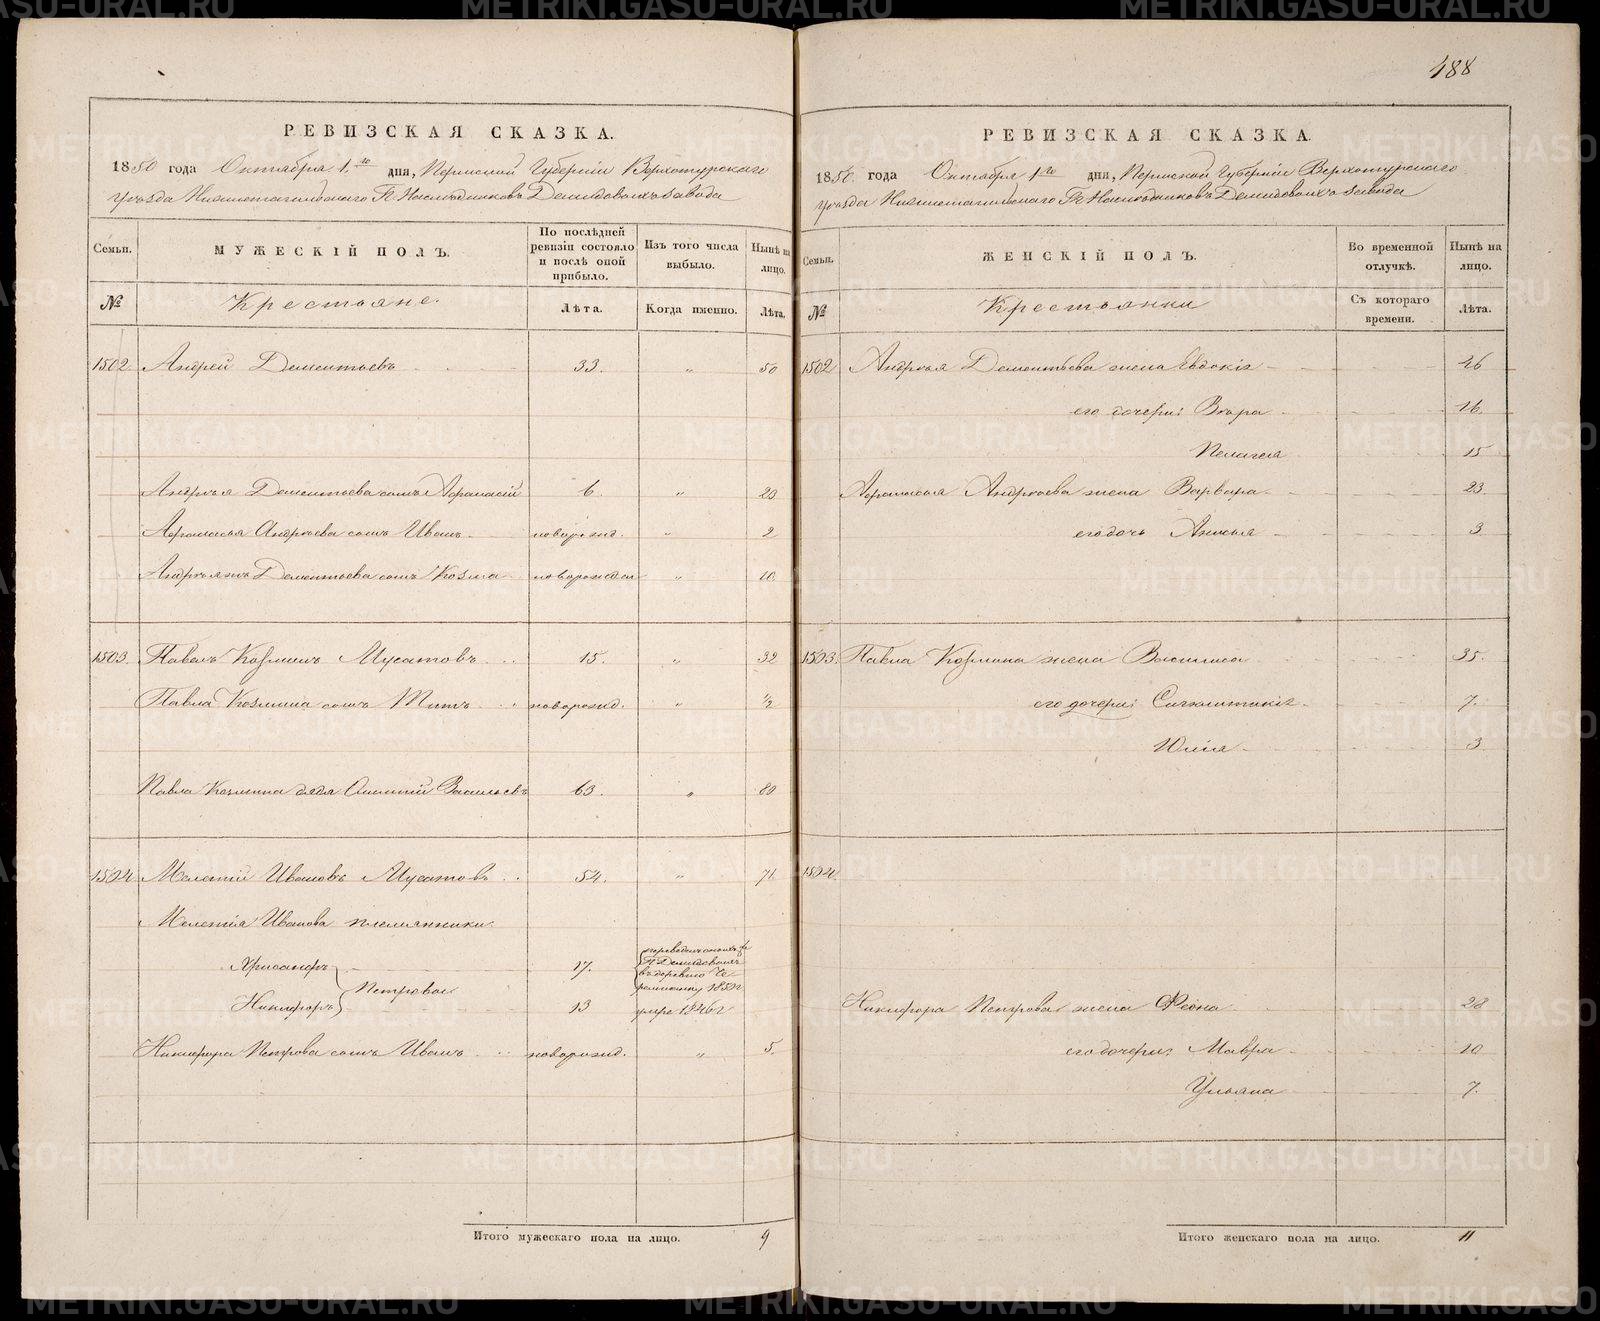 488
РЕВИЗСКАЯ СКАЗКА.
1850 года Октября 1го дня, Пермской Губерніи Верхотурскаго
уѣзда Нижнетагильскаго Г.г. Наслѣдниковъ Демидовыхъ завода
Семьи. МУЖЕСКІЙ ПОЛЪ. По послѣдней ревизіи состояло и послѣ оной прибыло. Изъ того числа выбыло. Нынѣ на лицо.
№ Крестьяне. Лѣта. Когда именно. Лѣта.
1502 Андрей Дементьевъ 33. „ 50
Андрѣя Дементьева сынъ Афанасій 6. „ 23
Афанасья Андрѣева сынъ Иванъ новорожд. „ 2
Дементьева сынъ Козма новорожден „ 10.
1503. Павелъ Козминъ Мусатовъ 15. „ 32
Павла Козмина сынъ Титъ новорожд. „ 1/2
Павла Козмина дядя Васильевъ 63. „ 80
1504. Мелетій Ивановъ Мусатовъ 54. „ 71.
Мелетія Иванова племянники
Хрисанфъ 17. переведенъ Г Демидовымъ въ деревню
Никифоръ Петровы 13 умре 1846 г
Никифора Петрова сынъ Иванъ новорожд. „ 5.
Итого мужескаго пола на лицо. 9
РЕВИЗСКАЯ СКАЗКА.
1850 года Октября 1го дня, Пермской Губерніи Верхотурскаго
уѣзда Нижнетагильскаго Г.г. Наслѣдниковъ Демидовыхъ завода
Семьи. ЖЕНСКІЙ ПОЛЪ. Во временной отлучкѣ. Нынѣ на лицо.
№ Крестьянки Съ котораго времени. Лѣта.
1502 Андрѣя Дементьева жена Евдокія 46
его дочери: Вѣра 16.
Пелагея 15
Афанасья Андрѣева жена Варвара 23.
его дочь Анисья 3
1503. Павла Козмина жена Василиса 35.
его дочери: Синклитикія 7.
Юлія 3
1504.
Никифора Петрова жена Феона 28
его дочери: Мавра 10
Ульяна 7.
Итого женскаго пола на лицо. 11
METRIKI.GASO-URAL.RU